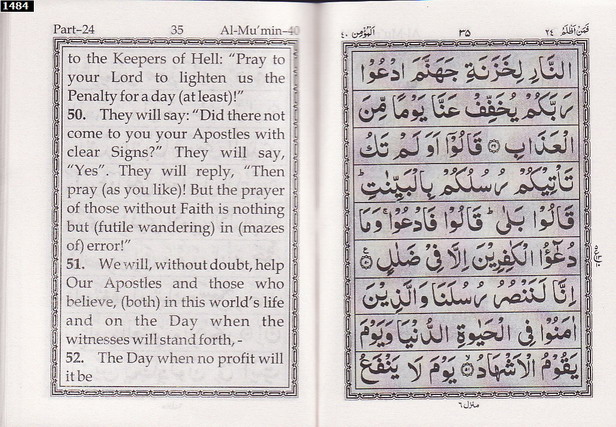 1484
Part-24 35 Al-Mu'min-40
to the Keepers of Hell: "Pray to
your Lord to lighten us the
Penalty for a day (at least)!"
50. They will say: "Did there not
come to you your Apostles with
clear Signs?" They will say,
"Yes". They will reply, "Then
pray (as you like)! But the prayer
of those without Faith is nothing
but (futile wandering) in (mazes
of) error!"
51. We will, without doubt, help
Our Apostles and those who
believe, (both) in this world's life
and on the Day when the
witnesses will stand forth, -
52. The Day when no profit will
it be
فَمَنْ اَظْلَمُ ٢٤ ٣٥ اَلْمُؤْمِن ٤٠
النَّارِ لِخَزَنَةِ جَهَنَّمَ ادْعُوْا
رَبَّكُمْ يُخَفِّفْ عَنَّا يَوْمًا مِّنَ
الْعَذَابِ ۝٤٩ قَالُوْٓا اَوَلَمْ تَكُ
تَاْتِيْكُمْ رُسُلُكُمْ بِالْبَيِّنٰتِ ؕ
قَالُوْا بَلٰى ؕ قَالُوْا فَادْعُوْا ۚ وَمَا
دُعٰٓؤُا الْكٰفِرِيْنَ اِلَّا فِيْ ضَلٰلٍ ۝٥٠
اِنَّا لَنَنْصُرُ رُسُلَنَا وَالَّذِيْنَ
اٰمَنُوْا فِي الْحَيٰوةِ الدُّنْيَا وَيَوْمَ
يَقُوْمُ الْاَشْهَادُ ۝٥١ يَوْمَ لَا يَنْفَعُ
منزل ٦